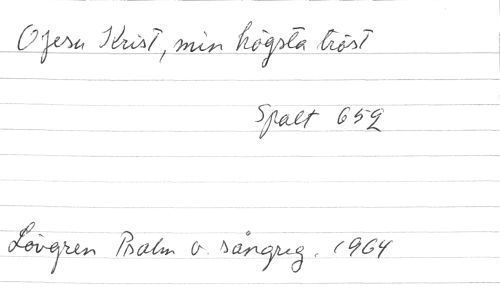 O Jesu Krist, min högsta tröst
Spalt 652
Lövgren Psalm o. sångreg. 1964